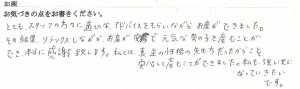 お産
お気づきの点をお書きください。
とても、スタッフの方々に適切な、アドバイスをもらいながらお産ができました。
その結果、リラックスしながら、お産が で元気な男の子を産むことが
でき、本当に感謝致します。私とは、真逆の性格の先生方だったからこそ
安心して産むことができました。私も強い女に
なっていきたい
です。